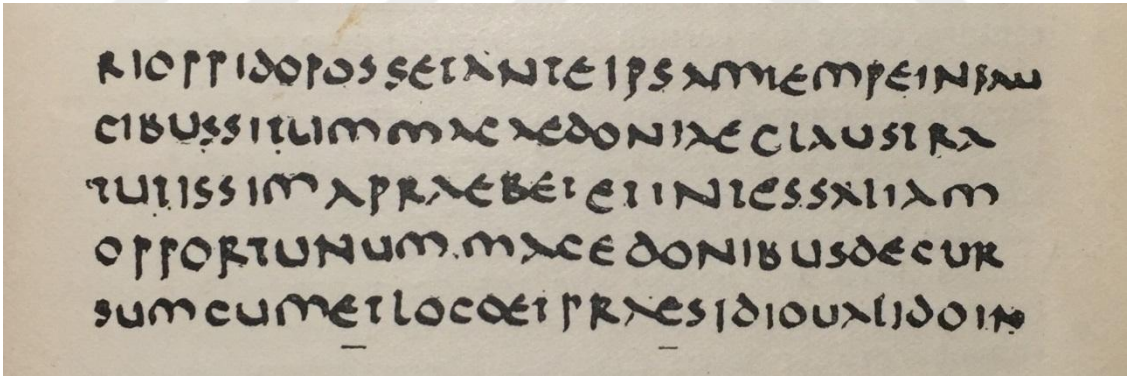 RIOPPIDOPOSSETANTEIPSAMTEMPEINFAU
CIBUSSITUMMACAEDONIAECLAUSTRA
TUTISSIMAPRAEBETETINTESSALIAM
OPPORTUNUMMACEDONIBUSDECUR
SUMCUMETLOCOETPRAESIDIOUALIDOIN